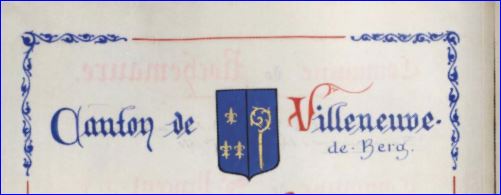 Canton de Villeneuve-
de-Berg.